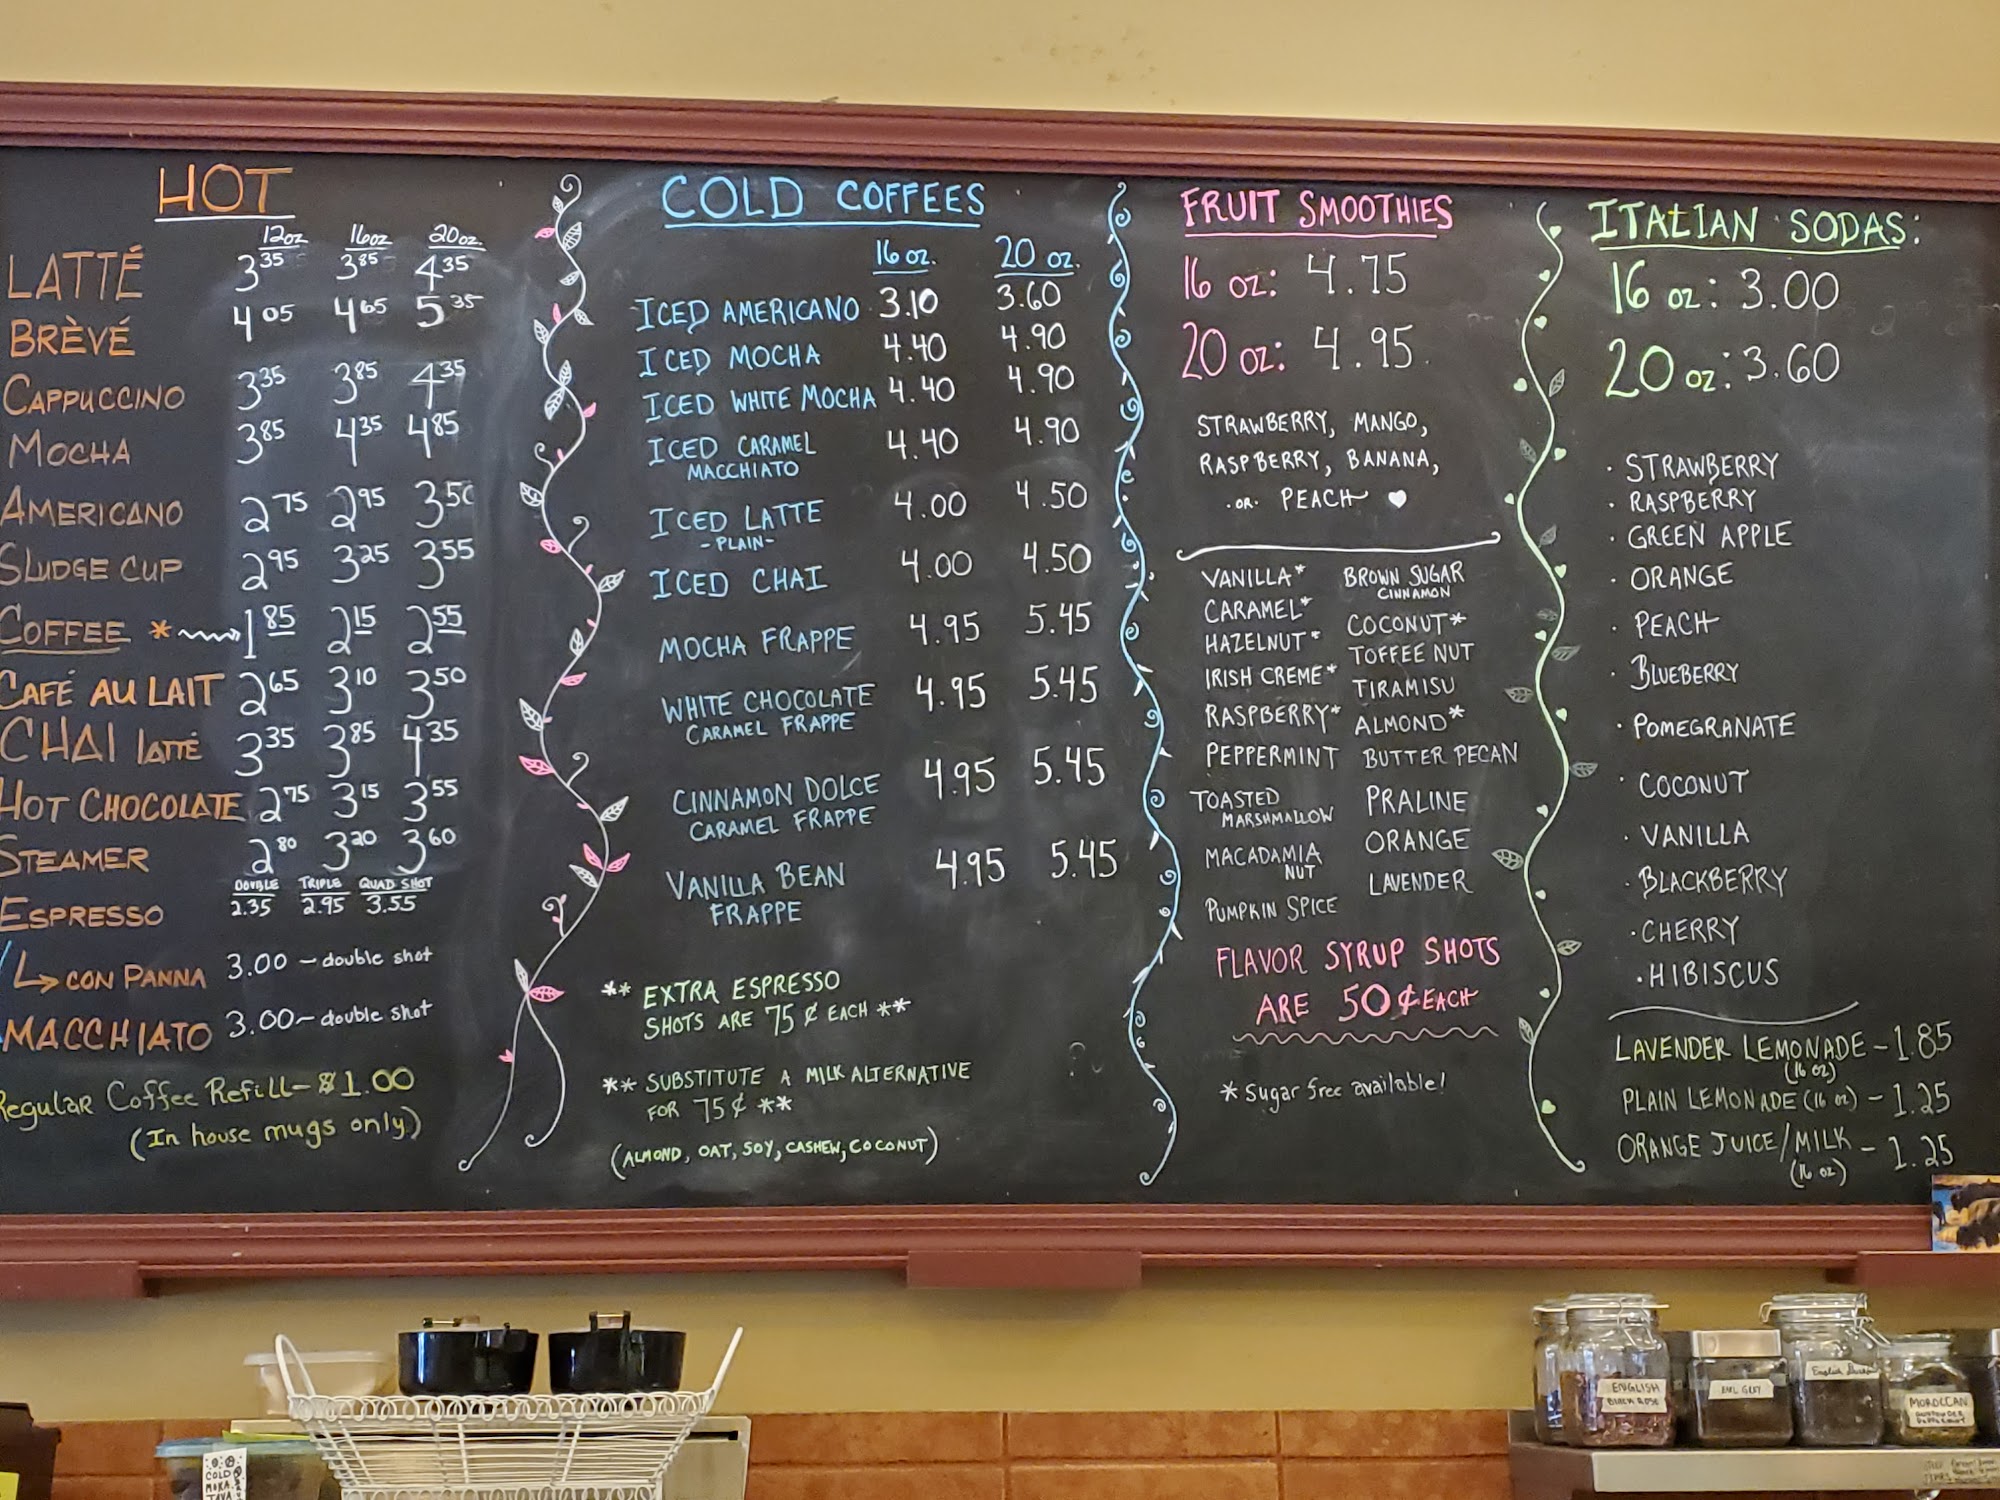 HOT
12oz 16oz 20oz
LATTÉ 3.35 3.85 4.35
BRÈVÉ 4.05 4.65 5.35
CAPPUCCINO 3.35 3.85 4.35
MOCHA 3.85 4.35 4.85
AMERICANO 2.75 2.95 3.50
SLUDGE CUP 2.95 3.25 3.55
COFFEE * 1.85 2.15 2.55
CAFÉ AU LAIT 2.65 3.10 3.50
CHAI LATTÉ 3.35 3.85 4.35
HOT CHOCOLATE 2.75 3.15 3.55
STEAMER 2.80 3.20 3.60
DOUBLE TRIPLE QUAD SHOT
ESPRESSO 2.35 2.95 3.55
CON PANNA 3.00 - double shot
MACCHIATO 3.00 - double shot
Regular Coffee Refill - $1.00
(In house mugs only)
COLD COFFEES
16 oz. 20 oz.
ICED AMERICANO 3.10 3.60
ICED MOCHA 4.40 4.90
ICED WHITE MOCHA 4.40 4.90
ICED CARAMEL 4.40 4.90
MACCHIATO
ICED LATTE 4.00 4.50
-PLAIN-
ICED CHAI 4.00 4.50
MOCHA FRAPPE 4.95 5.45
WHITE CHOCOLATE 4.95 5.45
CARAMEL FRAPPE
CINNAMON DOLCE 4.95 5.45
CARAMEL FRAPPE
VANILLA BEAN 4.95 5.45
FRAPPE
** EXTRA ESPRESSO
SHOTS ARE 75¢ EACH **
** SUBSTITUTE A MILK ALTERNATIVE
FOR 75¢ **
(ALMOND, OAT, SOY, CASHEW, COCONUT)
FRUIT SMOOTHIES
16 oz: 4.75
20 oz: 4.95
STRAWBERRY, MANGO,
RASPBERRY, BANANA,
·OR· PEACH
VANILLA* BROWN SUGAR
CINNAMON
CARAMEL* COCONUT*
HAZELNUT* TOFFEE NUT
IRISH CREME* TIRAMISU
RASPBERRY* ALMOND*
PEPPERMINT BUTTER PECAN
TOASTED PRALINE
MARSHMALLOW
MACADAMIA ORANGE
NUT
PUMPKIN SPICE LAVENDER
FLAVOR SYRUP SHOTS
ARE 50¢ EACH
* Sugar free available!
ITALIAN SODAS:
16 oz: 3.00
20 oz: 3.60
· STRAWBERRY
· RASPBERRY
· GREEN APPLE
· ORANGE
· PEACH
· BLUEBERRY
· POMEGRANATE
· COCONUT
· VANILLA
· BLACKBERRY
· CHERRY
· HIBISCUS
LAVENDER LEMONADE - 1.85
(16 oz)
PLAIN LEMONADE (16 oz) - 1.25
ORANGE JUICE/MILK - 1.25
(16 oz)
ENGLISH
EARL GREY
English
MOROCCAN
COLD
MOKA
JAVA